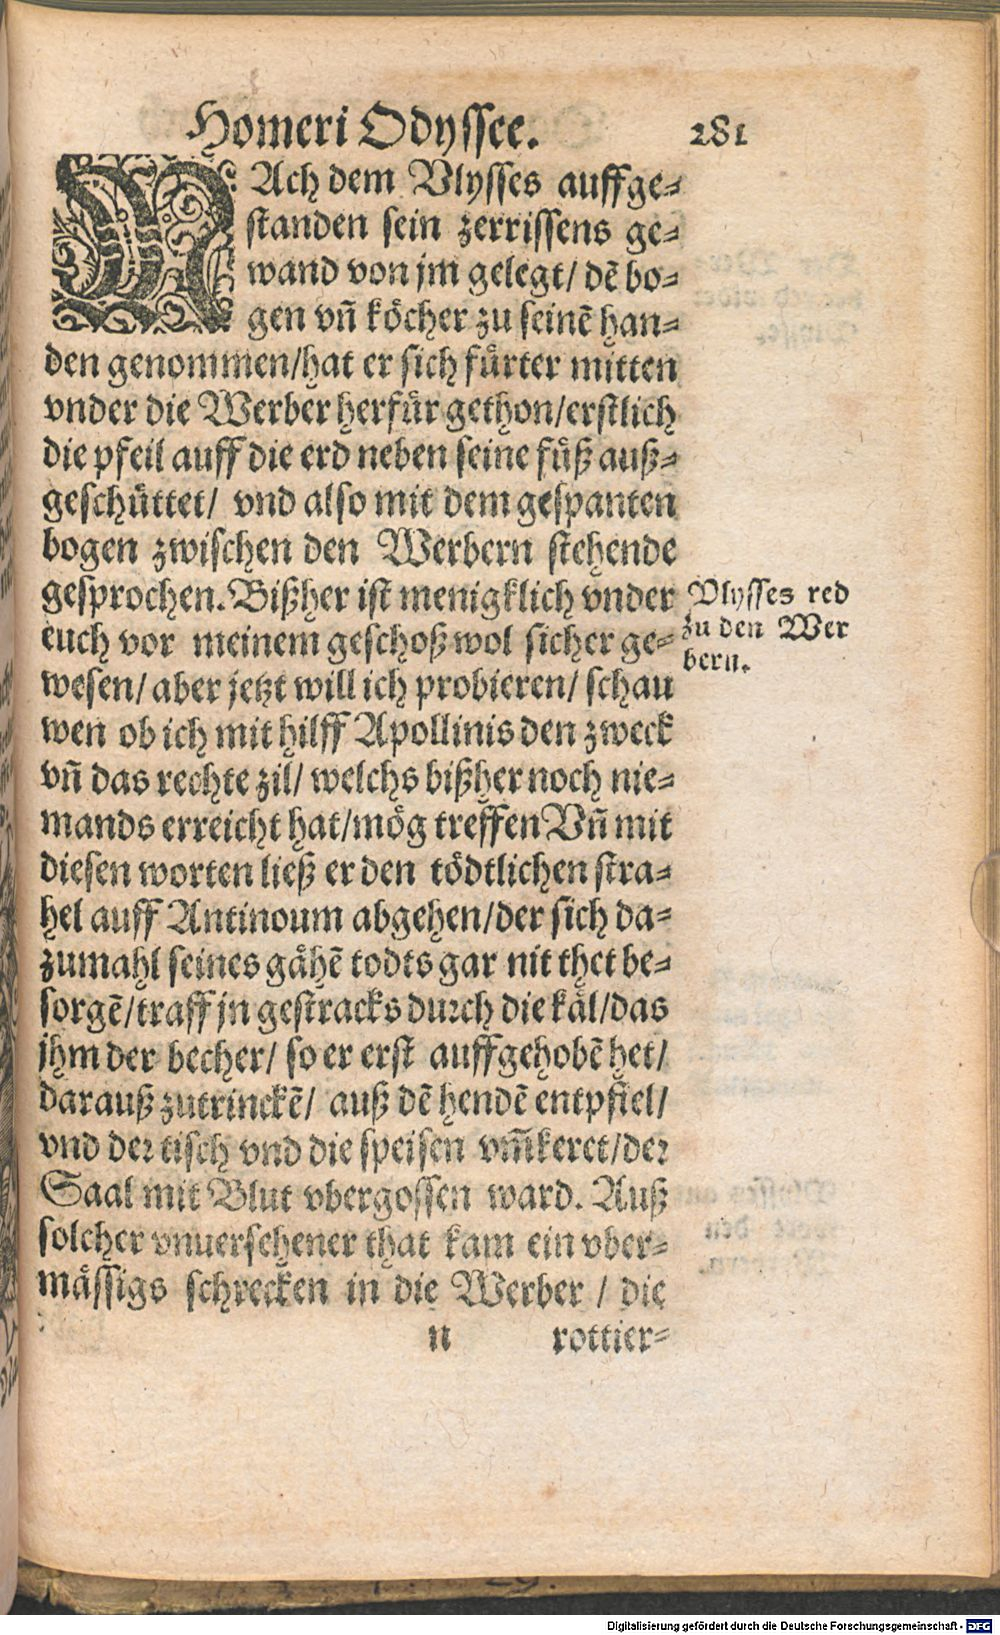 Homeri Odyssee. 281
NAch dem Vlysses auffge-
standen sein zerrissens ge-
wand von jm gelegt/ dẽ bo-
gen vñ köcher zu seinẽ han-
den genommen/hat er sich fürter mitten
vnder die Werber herfür gethon/erstlich
die pfeil auff die erd neben seine füß auß-
geschüttet/ vnd also mit dem gespanten
bogen zwischen den Werbern stehende
gesprochen. Bißher ist menigklich vnder
euch vor meinem geschoß wol sicher ge-
wesen/ aber jetzt will ich probieren/ schau
wen ob ich mit hilff Apollinis den zweck
vñ das rechte zil/ welchs bißher noch nie-
mands erreicht hat/mög treffen Vñ mit
diesen worten ließ er den tödtlichen stra-
hel auff Antinoum abgehen/der sich da-
zumahl seines gähẽ todts gar nit thet be-
sorgẽ/traff jn gestracks durch die käl/das
jhm der becher/ so er erst auffgehobẽ het/
darauß zutrinckẽ/ auß dẽ hendẽ entpfiel/
vnd der tisch vnd die speisen vm̃keret/der
Saal mit Blut vbergossen ward. Auß
solcher vnuersehener that kam ein vber-
mässigs schrecken in die Werber / die
n rottier-
Vlysses red
zu den Wer
bern.
Digitalisierung gefördert durch die Deutsche Forschungsgemeinschaft - DFG